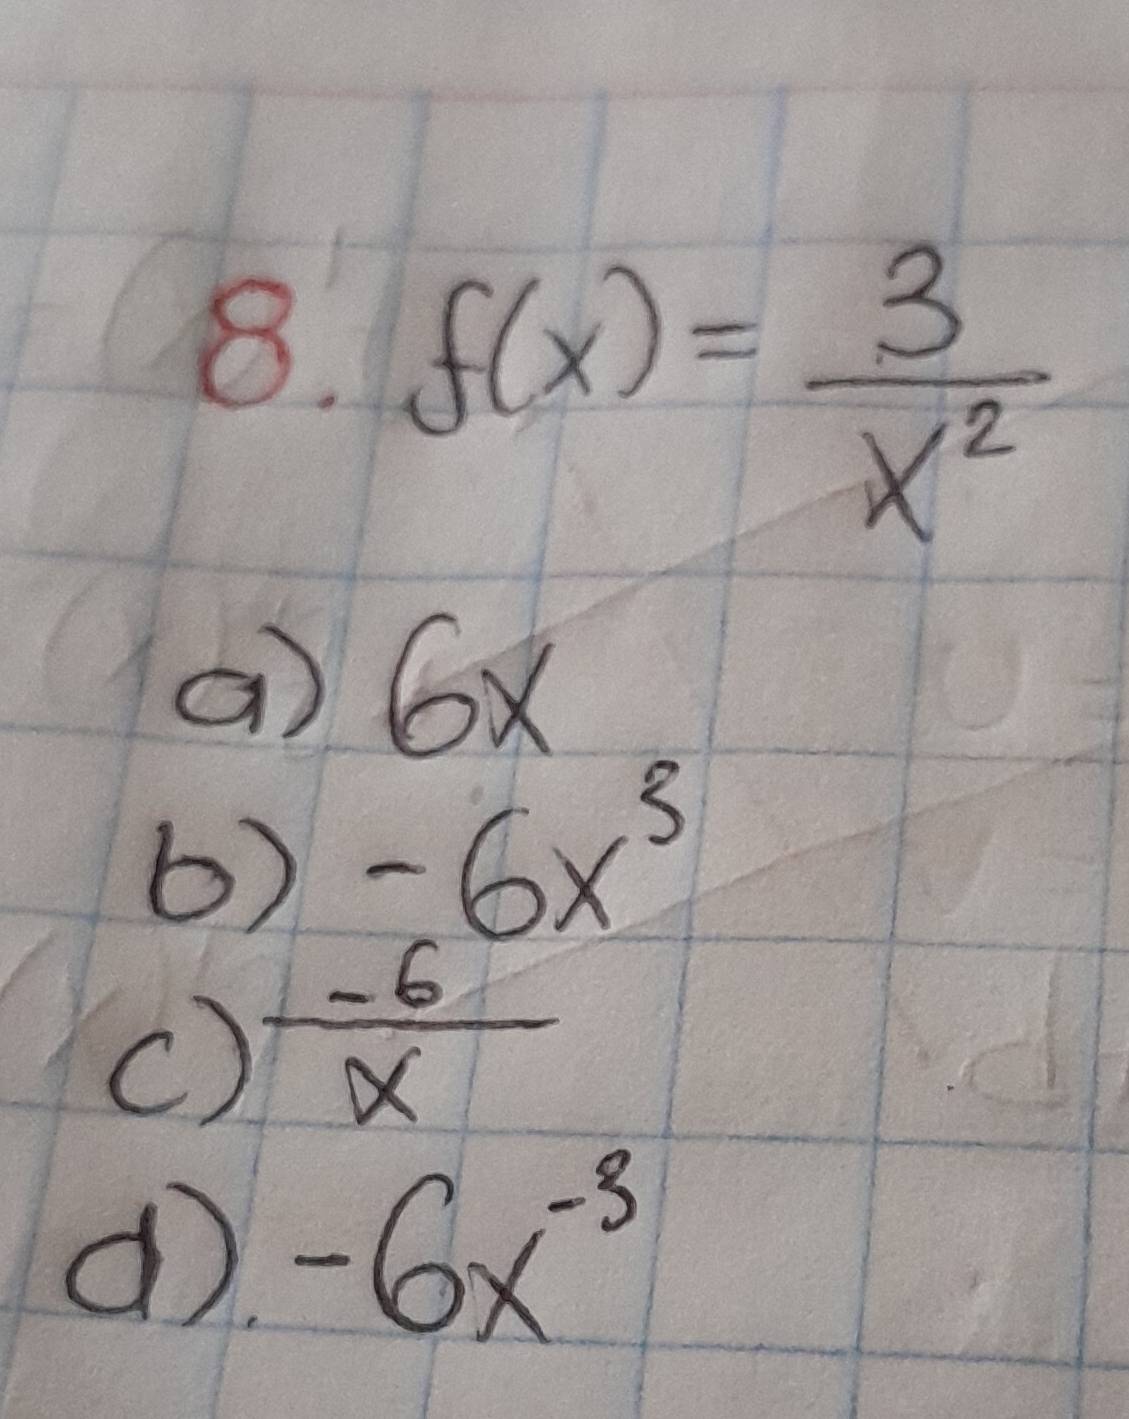 8. f(x) = 3/x²
a) 6x
b) -6x³
c) -6/x
d). -6x⁻³